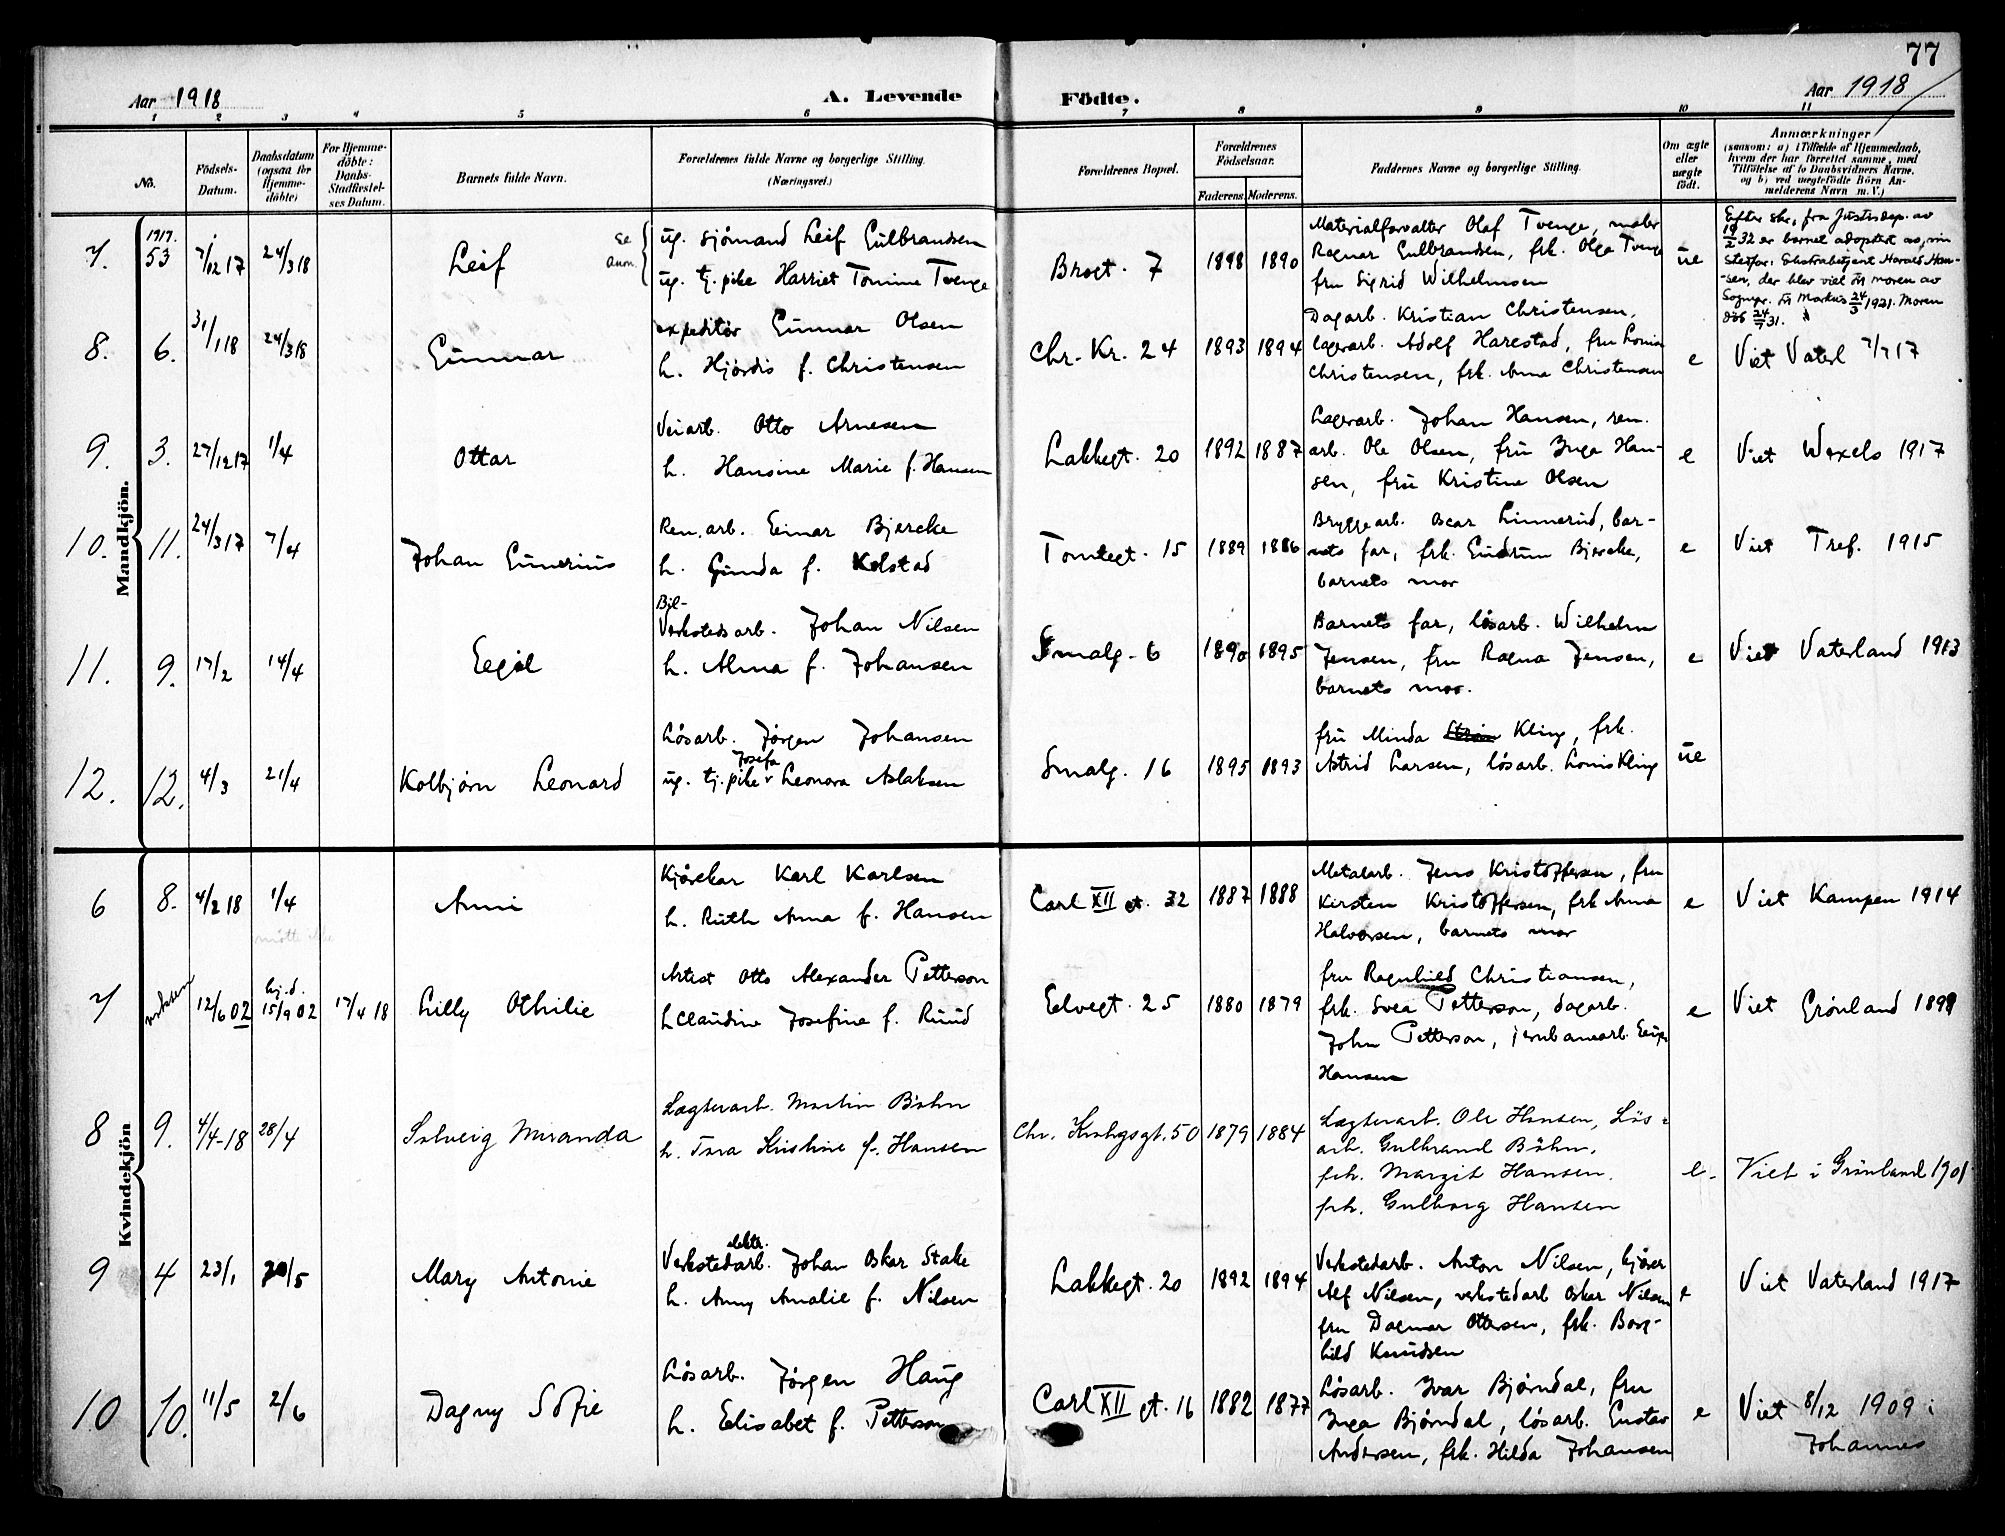 77
Aar 1918
A. Levende Födte.
Aar 1918
1 2 3 4 5 6 7 8 9 10 11
No.
Födsels-Datum.
Daabsdatum (ogsaa for Hjemme-döbte)
For Hjemme-döbte: Daabs-Stadfæstel-ses Datum.
Barnets fulde Navn.
Forældrenes fulde Navne og borgerlige Stilling.
(Næringsvei.)
Forældrenes Bopæl.
Forældrenes Födselsaar.
Faderens. Moderens.
Faddernes Navne og borgerlige Stilling.
Om ægte eller uægte födt.
Anmærkninger
(saasom: a) i Tilfælde af Hjemmedaab,
hvem der har forrettet samme, med
Tilföielse af to Daabsvidners Navne,
og b) ved uægtefödte Börn An-
melderens Navn m. V.)
Mandkjön.
7. 1917. 53 7/12 17 24/3 18 Leif
Se anm.
ug. sjømand Leif Gulbrandsen
ug. tj.pike Harriet Tomine Tvenge
Brogt. 7 1898 1890
Materialforvalter Olaf Tvenge, maler
Ragnar Gulbrandsen, frk. Olga Tvenge
fru Sigrid Wilhelmsen
ue
Efter skr. fra Justisdep. av
19/2 32 er barnet adoptert av sin
stefar, Ekstrabetjent Harald Han-
sen, der blev viet til moren av
Sognepr. til Markus 24/3 1921. Moren
død 24/7 31.
8. 6. 31/1 18 24/3 18 Gunnar
expeditør Gunnar Olsen
h. Hjørdis f. Christensen
Chr. Kr. 24 1893 1894
Dagarb. Kristian Christensen,
lagerarb. Adolf Harestad, fru Lovisa
Christensen, frk. Anna Christensen
e Viet Vaterl 7/7 17
9. 3. 27/12 17 1/4 Ottar
Veiarb. Otto Arnesen
h. Hansine Marie f. Hansen
Lakkegt. 20 1892 1887
Lagerarb. Johan Hansen, ren.
arb. Ole Olsen, fru Inga Han-
sen, fru Kristine Olsen
e Viet Wexels 1917
10. 11. 24/3 17 7/4 Johan Gunerius
Ren. arb. Einar Bjercke
h. Gunda f. Kolstad
Tomtegt. 15 1889 1886
Bryggearb. Oscar Linnerud, bar-
nets far, frk. Gudrun Bjercke,
barnets mor
e Viet Tref. 1915
11. 9. 17/2 14/4 Eegil
Bil-
Verkstedsarb. Johan Nilsen
h. Alma f. Johansen
Smalg. 6 1890 1895
Barnets far, løsarb. Wilhelm
Jensen, fru Ragna Jensen,
barnets mor.
e Viet Vaterland 1913
12. 12. 4/3 21/4 Kolbjørn Leonard
Løsarb. Jørgen Johansen
Josefa
ug. tj.pike Leonora Aslaksen
Smalg. 16 1895 1893
fru Minda Kling, frk.
Astrid Larsen, løsarb. Louis Kling
ue
Kvindekjön
6 8. 4/2 18 1/4 Anni
Kjørekar Karl Karlsen
h. Ruth Anna f. Hansen
Carl XII gt. 32 1887 1888
Metalarb. Jens Kristoffersen, fru
Kirsten Kristoffersen, frk Anna
Halvorsen, barnets mor
e Viet Kampen 1914
7 12/6 02 hj.d. 15/9 02 17/4 18 Lilly Othilie
Artist Otto Alexander Petterson
h Claudine Josefine f. Ruud
Eelvegt. 25 1880 1879
fru Ragnhild Christiansen,
frk. Svea Petterson, dagarb.
John Petterson, jernbanearb.
Hansen
e Viet Grønland 1899
8 9. 4/4-18 28/4 Solveig Miranda
Lægterarb. Martin Böhn
h. Tora Kristine f. Hansen
Chr. Krohgsgt. 50 1879 1884
Lægterarb. Ole Hansen, Lös-
arb. Gulbrand Böhn,
frk. Margit Hansen.
frk. Gulborg Hansen
e. Viet i Grönland 1901
9 4 23/1 20/5 Mary Antonie
elektr.
Verkstedarb. Johan Oskar Stake
h. Anny Amalie f. Nilsen
Lakkegt. 20 1892 1894
Verkstedarb. Anton Nilsen, kjører
Alf Nilsen, verkstedarb Oskar Nilsen
fru Dagmar Ottersen, frk. Borg-
hild Knudsen
e Viet Vaterland 1917
10 10. 11/5 2/6 Dagny Sofie
Løsarb. Jørgen Haug
h. Eelisabet f. Petterson
Carl XII gt. 16 1882 1877
Løsarb. Ivar Bjørndal, fru
Inga Bjørndal, løsarb. Gustav
Andersen, frk. Hilda Johansen
e Viet 8/12 1909 i
Johannes